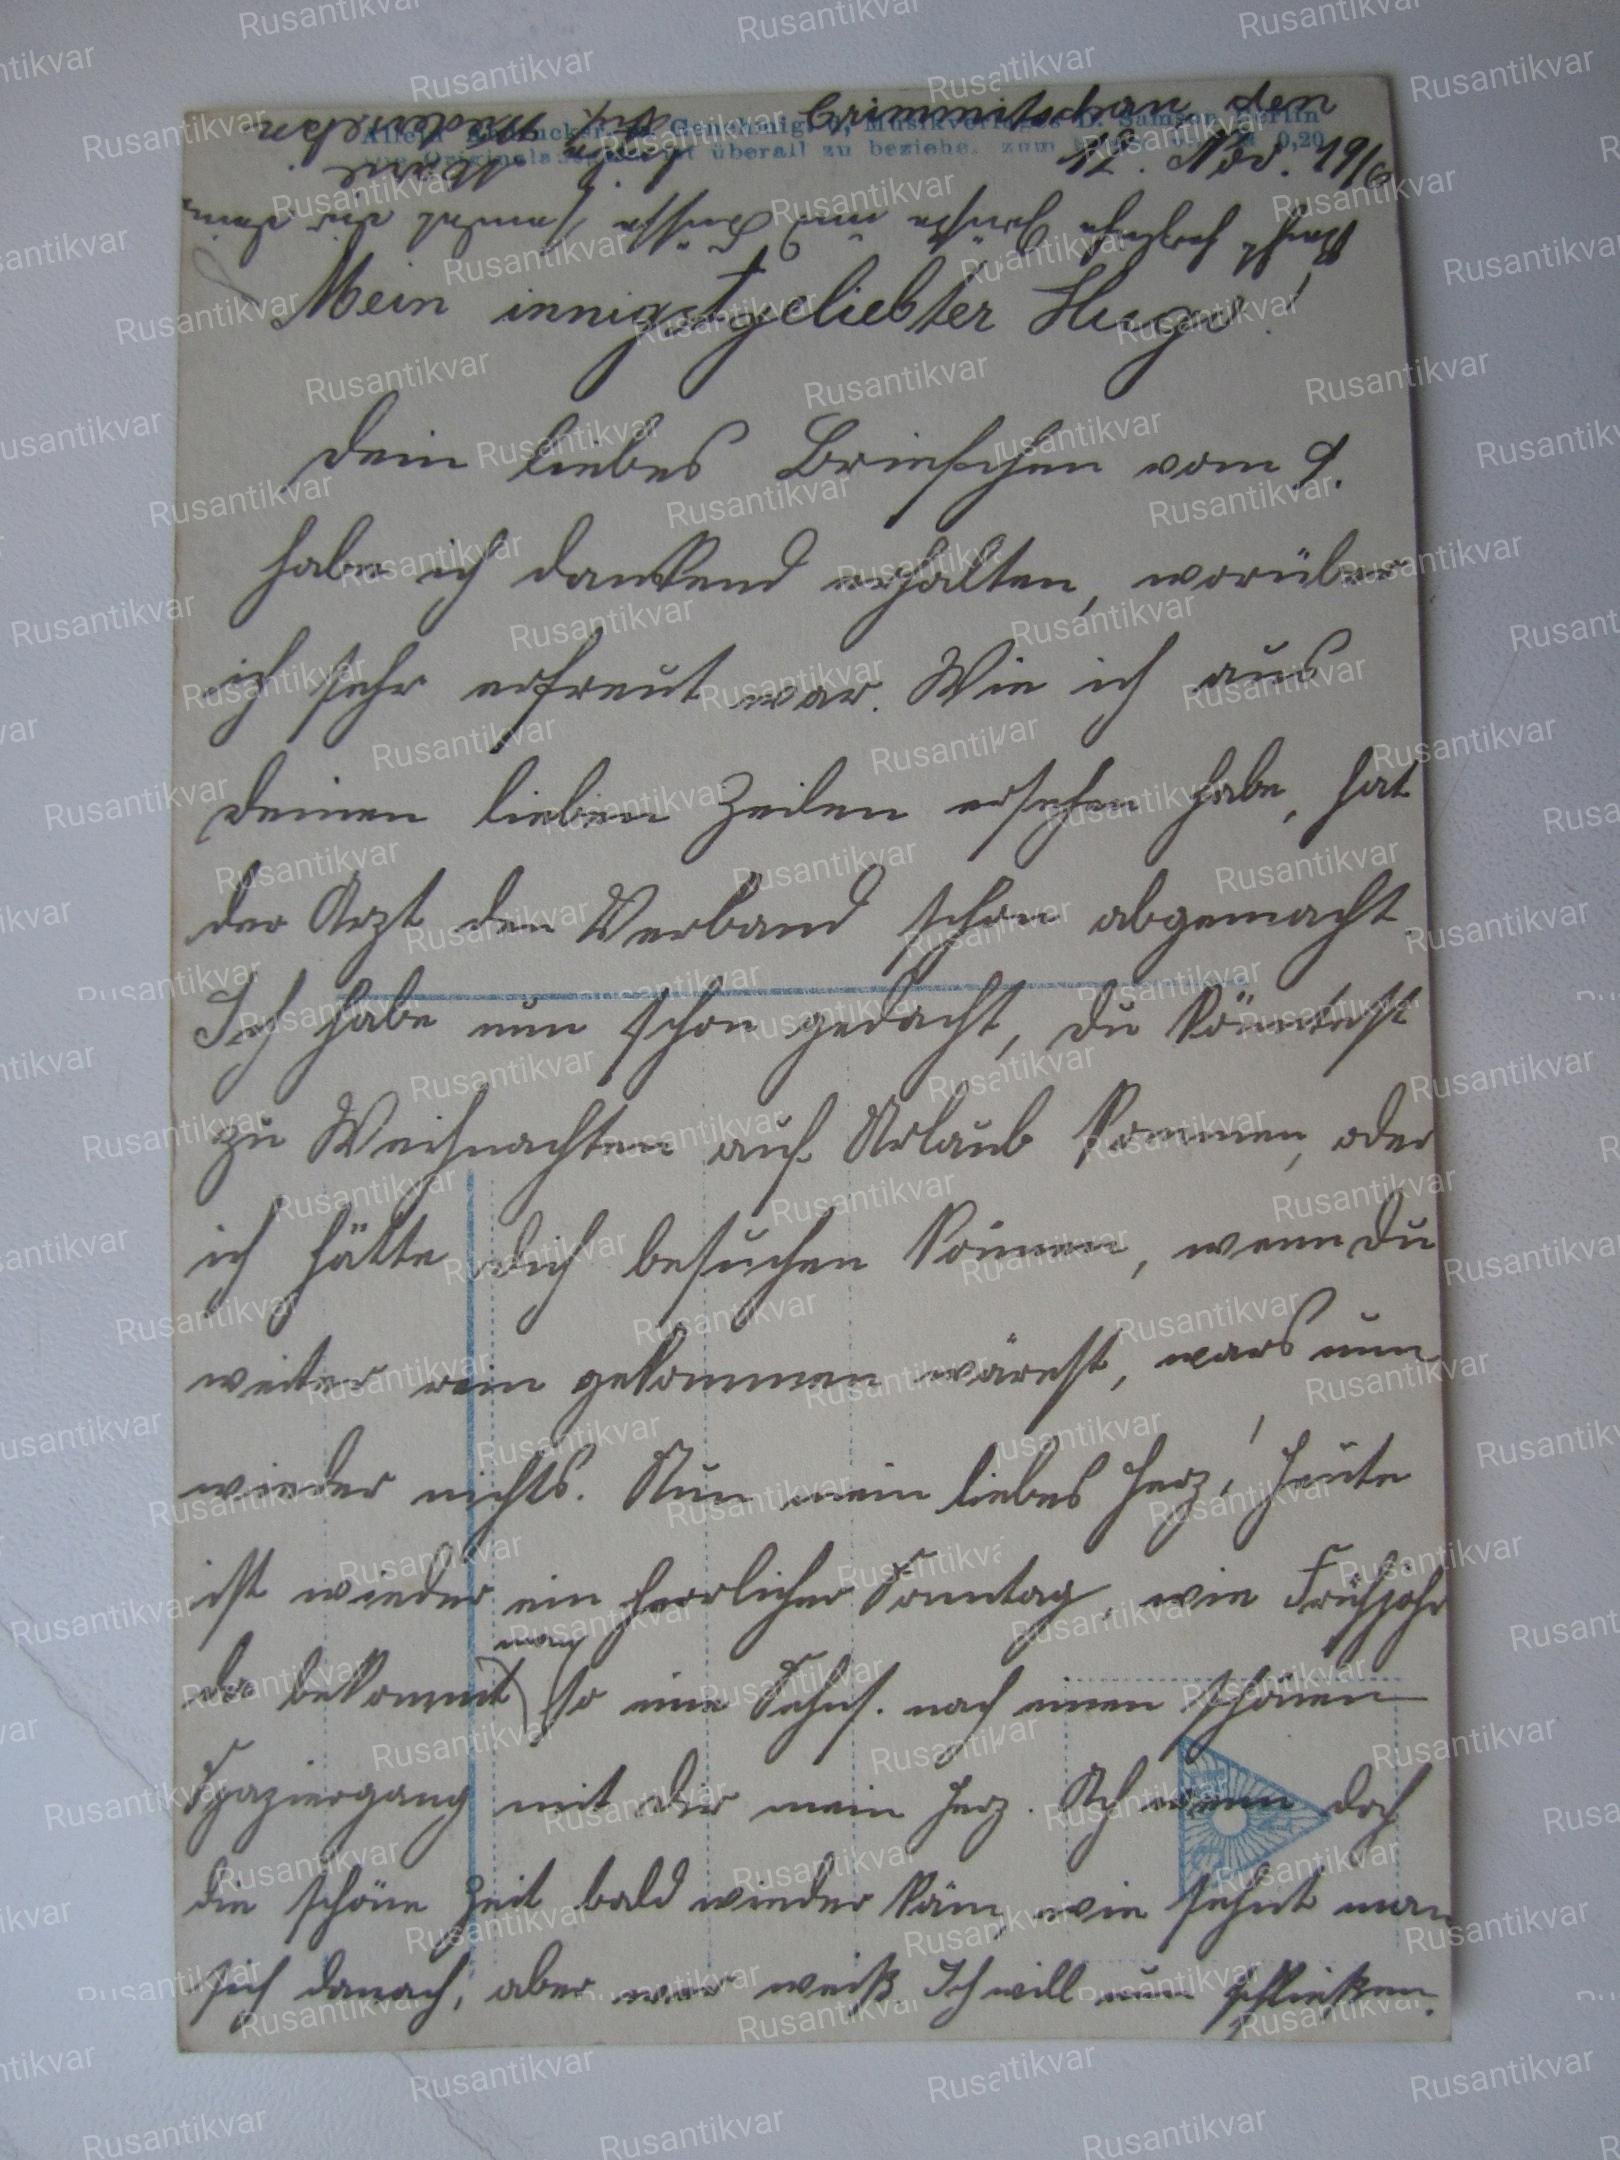 Crimmitschau, den
12. Nov. 1916
Mein innigstgeliebter Hugo!
Dein liebes Briefchen vom 9.
habe ich dankend erhalten, worüber
ich sehr erfreut war. Wie ich aus
deinen lieben Zeilen ersehen habe, hat
der Arzt den Verband schon abgemacht.
Ich habe nun schon gedacht, du könntest
zu Weihnachten auf Urlaub kommen, oder
ich hätte dich besuchen können, wenn du
weiter rein gekommen wärest, wars nun
wieder nichts. Nun mein liebes Herz! Heute
ist wieder ein herrlicher Sonntag, wie Frühjahr
da bekommt man so eine Sehns. nach einen schönen
Spaziergang mit dir mein Herz. Ach wenn doch
die schöne Zeit bald wieder käm, wie sehnt man
sich danach, aber wer weiß. Ich will nun schließen.
Recht herzliche Grüße und Küsse sendet dir deine
Marie
Auf Wiedersehn
Rusantikvar